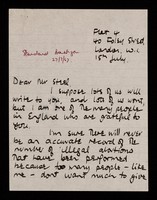 Flat 4
40 Foley Street,
London. W.1
15th July.
Dear Mr Steel
I suppose lots of us will
write to you, and lots of us won't,
but I am one of the many people
in England who are grateful to
you.
I'm sure there will never
be an accurate record of the
number of illegal abortions
that have been performed
because too many people - like
me - don't want much to give